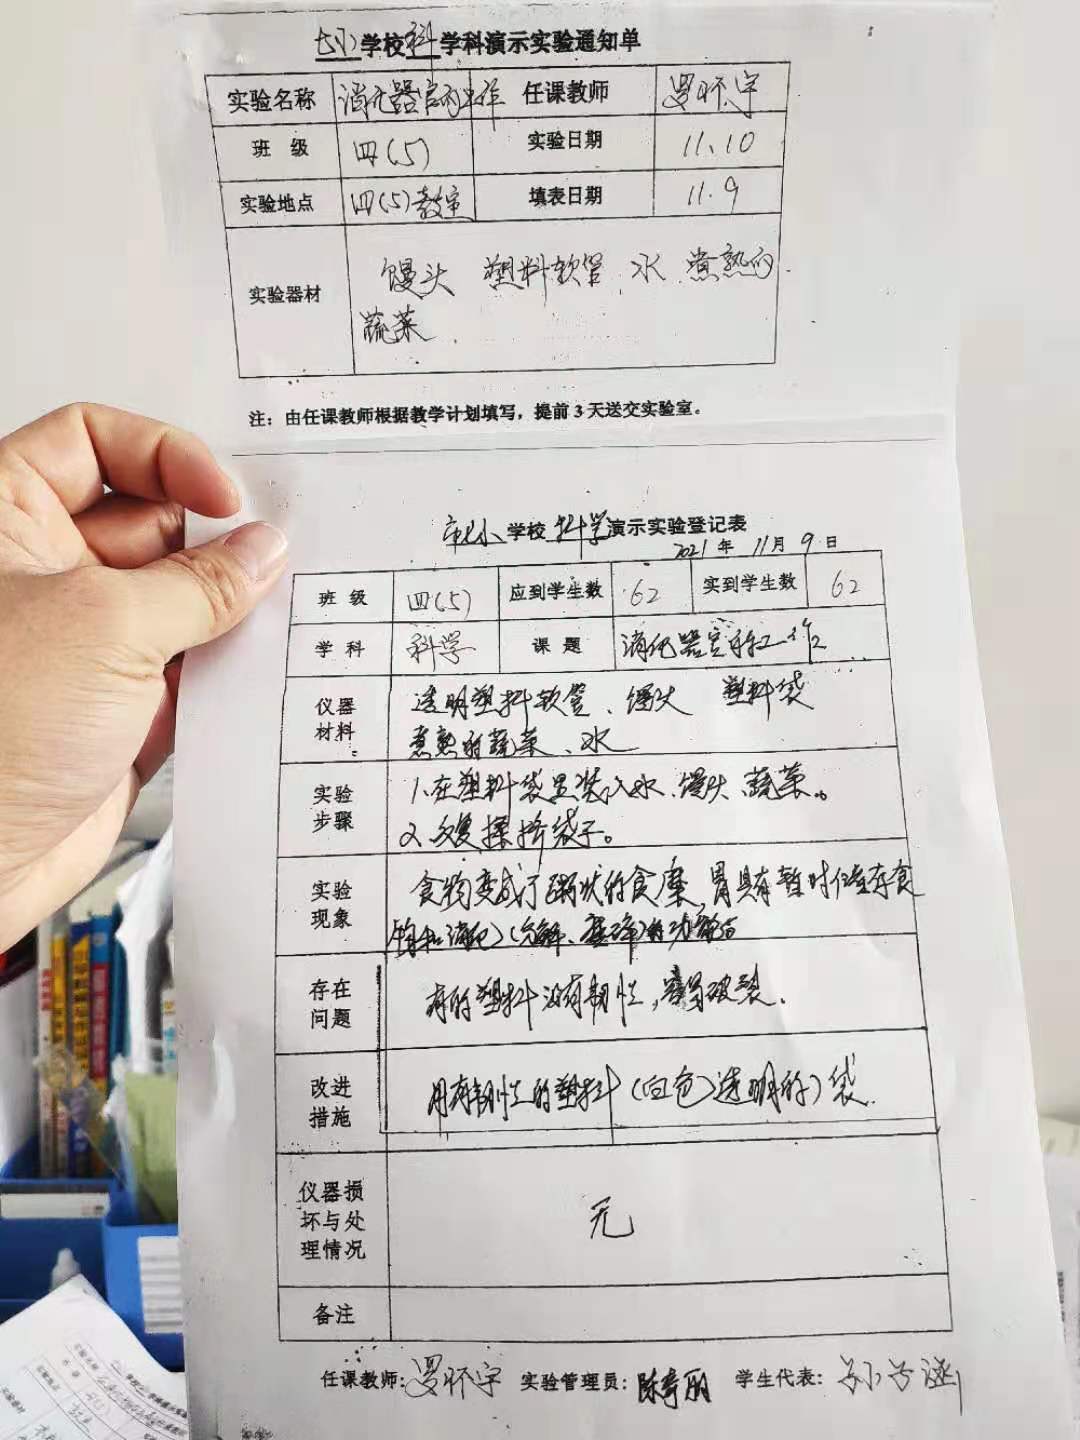 七小学校科学科演示实验通知单
实验名称 消化器官的工作 任课教师 罗怀宇
班 级 四(5) 实验日期 11、10
实验地点 四(5)教室 填表日期 11.9
实验器材 馒头 塑料软管、水、煮熟的
蔬菜.
注：由任课教师根据教学计划填写，提前3天送交实验室。
市七小学校科学演示实验登记表
2021年11月9日
班 级 四(5) 应到学生数 62 实到学生数 62
学 科 科学 课 题 消化器官的工作
仪器材料 透明塑料软管、馒头 塑料袋
煮熟的蔬菜、水
实验步骤 1.在塑料袋里装入水、馒头、蔬菜。
2.反复揉挤袋子。
实验现象 食物变成了粥状的食糜,胃具有暂时储存食
物和消化(分解、磨碎)的功能。
存在问题 有的塑料没有韧性,容易破裂.
改进措施 用有韧性的塑料(白色)透明的)袋.
仪器损坏与处理情况 无
备注
任课教师:罗怀宇 实验管理员:陈 丽 学生代表:孙 涵